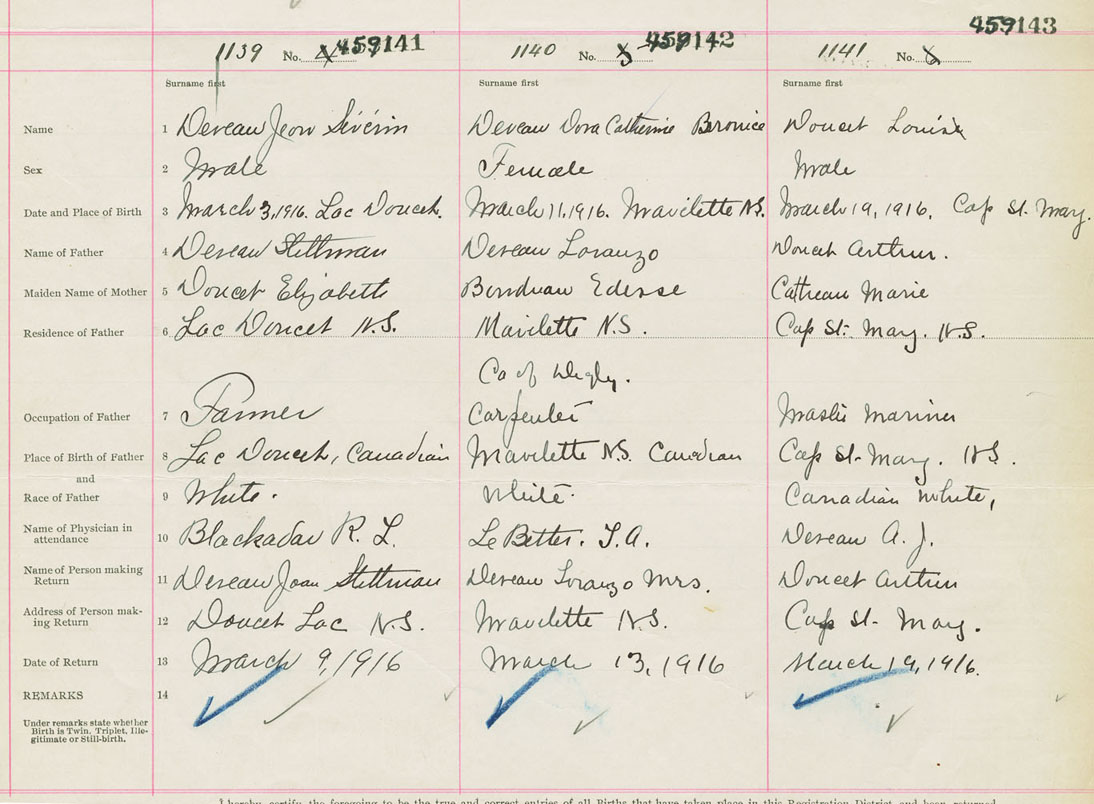 459143
1139 No. 4 459141 1140 No. 5 459142 1141 No. 6
Surname first Surname first Surname first
Name 1 Deveau Jean Sévérin Deveau Dora Catherine Beronice Doucet Louis
Sex 2 Male Female Male
Date and Place of Birth 3 March 3, 1916. Lac Doucet. March 11, 1916. Mavilette N.S. March 19, 1916. Cap St. Mary.
Name of Father 4 Deveau Stillman Deveau Loranzo Doucet Arthur.
Maiden Name of Mother 5 Doucet Elizabeth Edesse Marie
Residence of Father 6 Lac Doucet N.S. Mavilette N.S. Cap St. Mary. N.S.
Co of Digby.
Occupation of Father 7 Farmer Carpenter Master Mariner
Place of Birth of Father 8 Lac Doucet, Canadian Mavilette N.S. Canadian Cap St. Mary. N.S.
and
Race of Father 9 White. White. Canadian White,
Name of Physician in
attendance 10 Blackadar R. L. Le Better. T.A. Deveau A. J.
Name of Person making
Return 11 Deveau Jean Stillman Deveau Loranzo Mrs. Doucet Arthur
Address of Person mak-
ing Return 12 Doucet Lac N.S. Mavilette N.S. Cap St. Mary.
Date of Return 13 March 9, 1916 March 13, 1916 March 19, 1916.
REMARKS 14
Under remarks state whether
Birth is Twin, Triplet, Ille-
gitimate or Still-birth.
I hereby certify, the foregoing to be the true and correct entries of all Births that have taken place in this Registration District and been returned